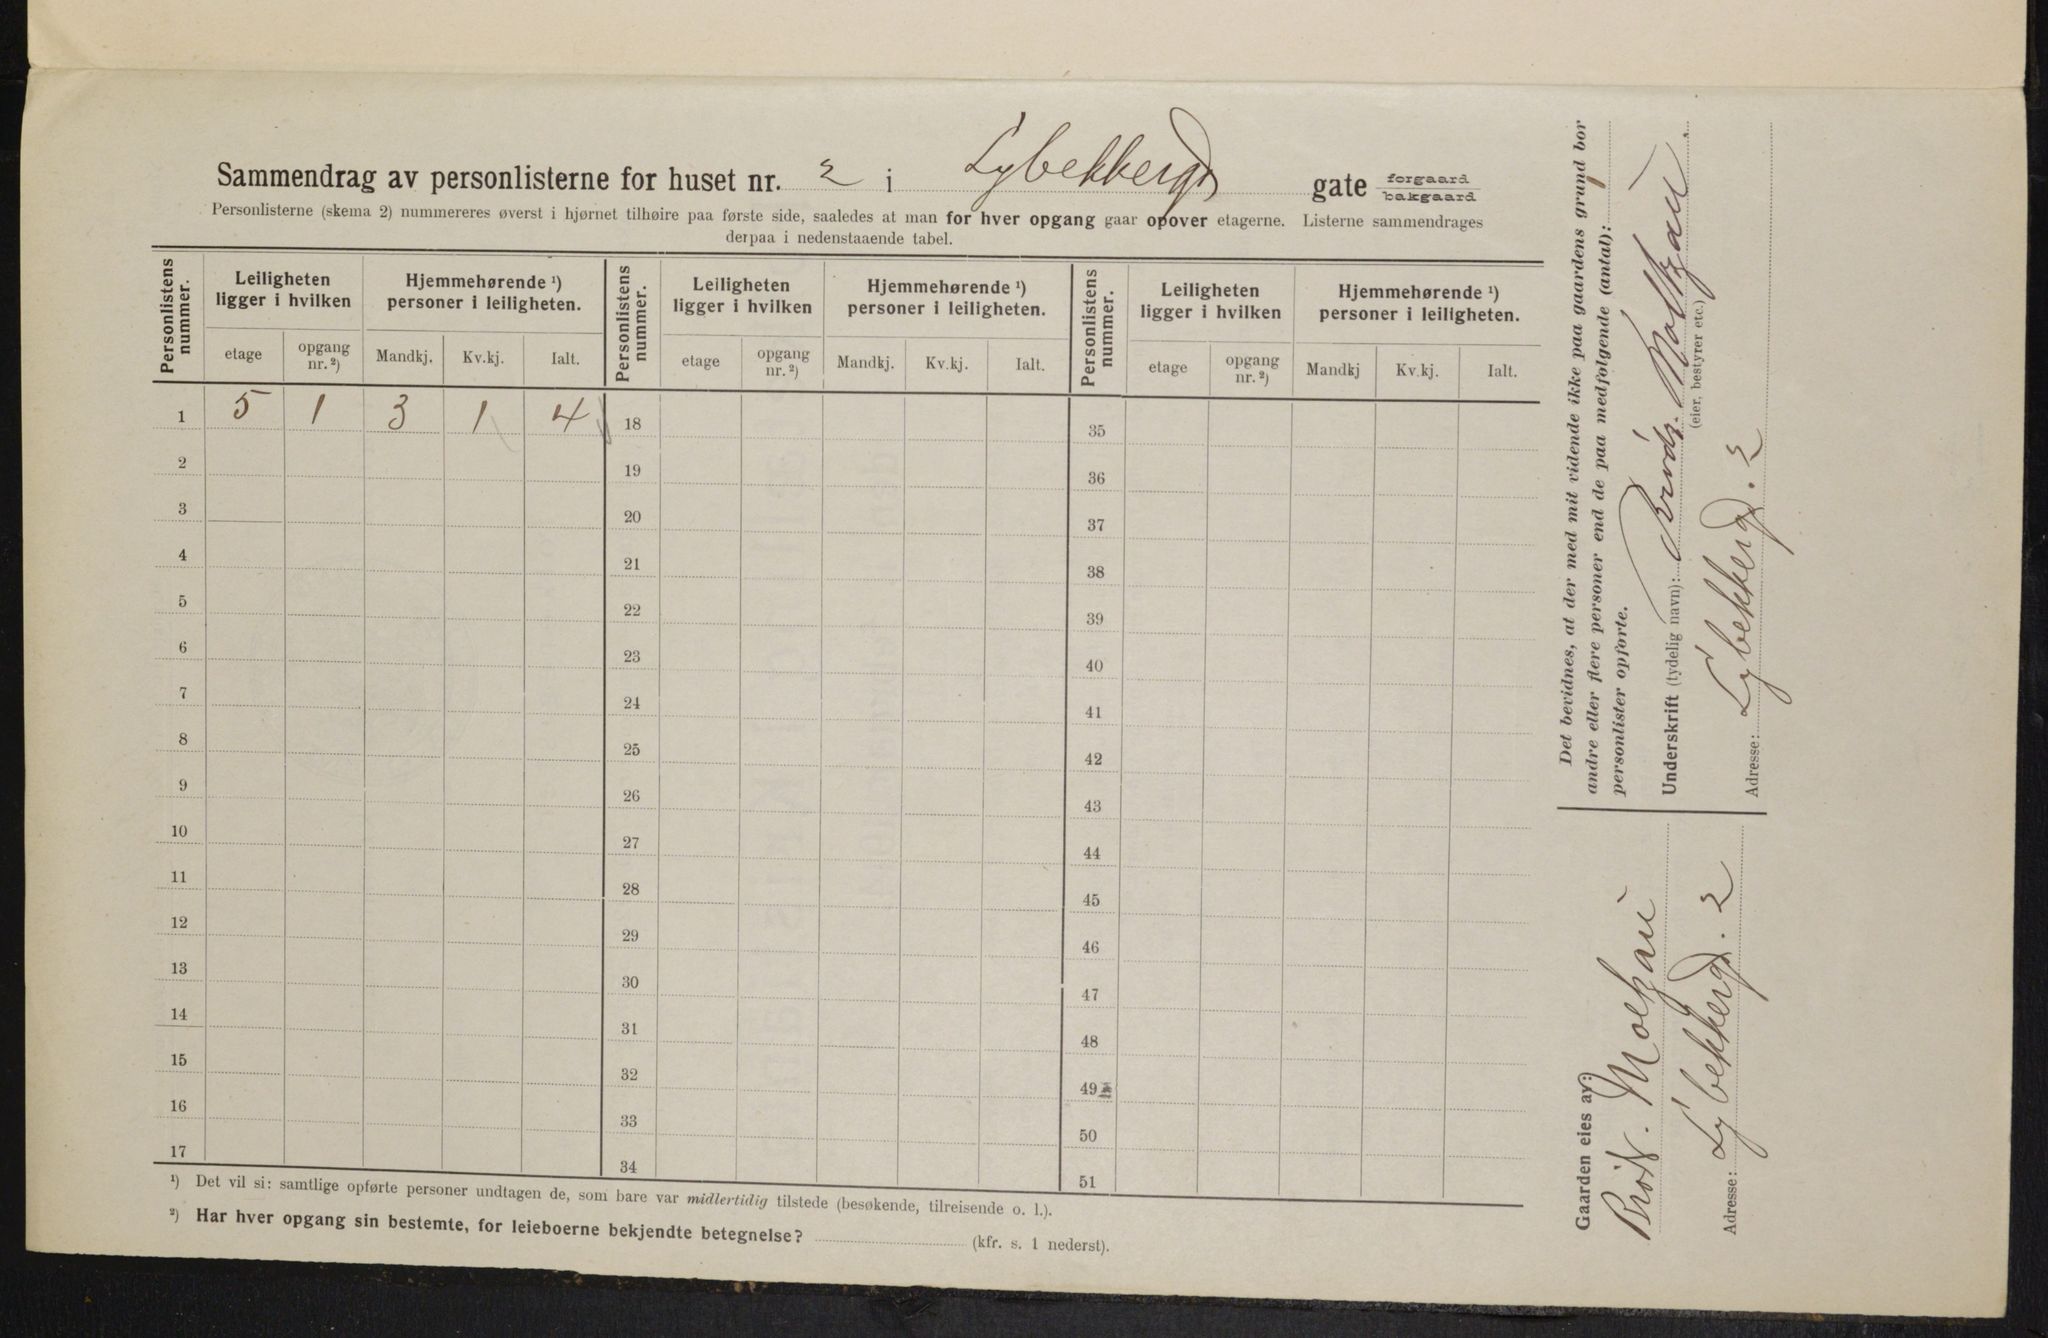 Sammendrag av personlisterne for huset nr. 2 i Lybekkergd gate forgaard bakgaard
Personlisterne (skema 2) nummereres øverst i hjørnet tilhøire paa første side, saaledes at man for hver opgang gaar opover etagerne. Listerne sammendrages
derpaa i nedenstaaende tabel.
Personlistens nummer. Leiligheten ligger i hvilken Hjemmehørende ¹) personer i leiligheten. Personlistens nummer. Leiligheten ligger i hvilken Hjemmehørende ¹) personer i leiligheten. Personlistens nummer. Leiligheten ligger i hvilken Hjemmehørende ¹) personer i leiligheten.
etage opgang nr. ²) Mandkj. Kv.kj. Ialt. etage opgang nr. ²) Mandkj. Kv.kj. Ialt. etage opgang nr. ²) Mandkj Kv.kj. Ialt.
1 5 1 3 1 4 18 35
2 19 36
3 20 37
4 21 38
5 22 39
6 23 40
7 24 41
8 25 42
9 26 43
10 27 44
11 28 45
12 29 46
13 30 47
14 31 48
15 32 49
16 33 50
17 34 51
¹) Det vil si: samtlige opførte personer undtagen de, som bare var midlertidig tilstede (besøkende, tilreisende o. l.).
²) Har hver opgang sin bestemte, for leieboerne bekjendte betegnelse? (kfr. s. 1 nederst).
Det bevidnes, at der med mit vidende ikke paa gaardens grund bor
andre eller flere personer end de paa medfølgende (antal): 1
personlister opførte.
Underskrift (tydelig navn): Moltzau
(eier, bestyrer etc.)
Adresse: Lybekkergd. 2
Gaarden eies av:
Moltzau
Adresse: Lybekkergd. 2